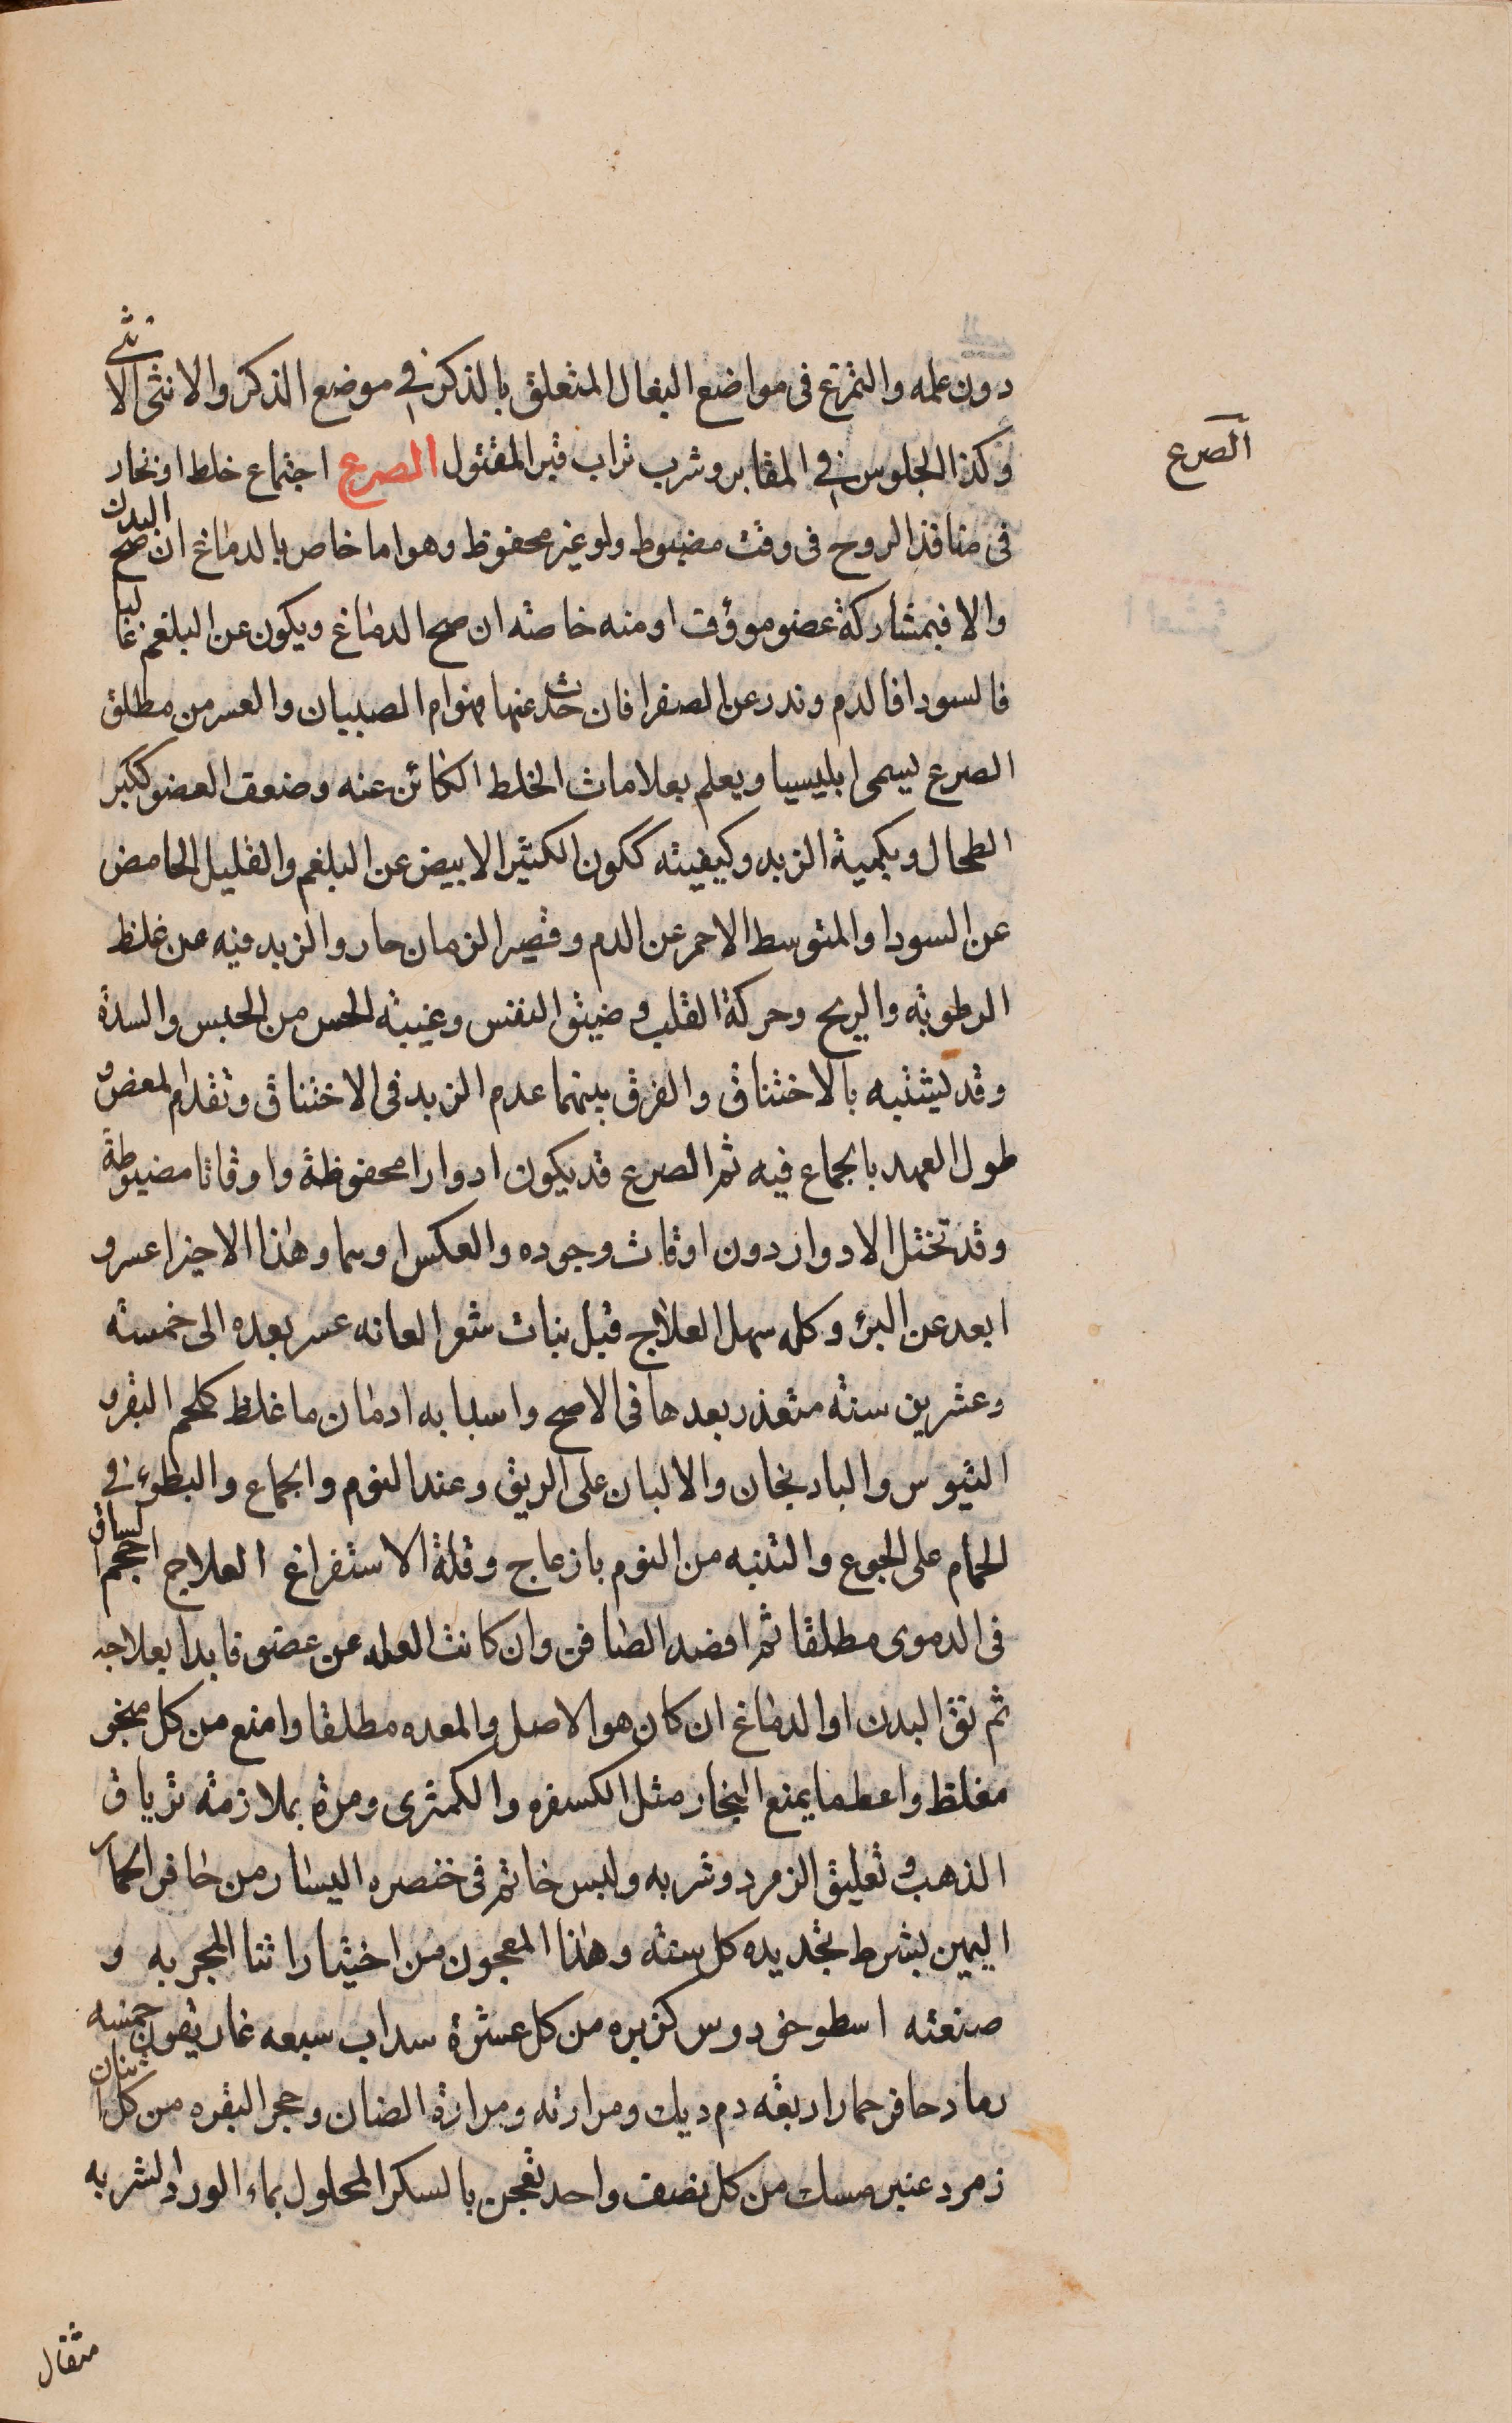 دون علمه والتمرغ فى مواضع البغال المتعلق بالذكر فى موضع الذكر والانثى الانثى
وكذا الجلوس فى المقابر وشرب تراب قبر المقتول الصرع اجتماع خلط او بخار
الصرع
فى منافذ الروح فى وقت مضبوط ولو غير محفوظ وهو اما خاص بالدماغ ان صح البدن
والا فبمشاركة عضو مووف او منه خاصته ان صح الدماغ ويكون عن البلغم غالبا
فالسودا فالدم وندر عن الصفرا فان حدث عنها فهو ام الصبيان والعسر من مطلق
الصرع يسمى ابليسيا ويعلم بعلامات الخلط الكائن عنه وضعف العضو ككبر
الطحال وبكمية الزبد وكيفيته ككون الكثير الابيض عن البلغم والقليل الحامض
عن السودا والمتوسط الاحمر عن الدم وقصير الزمان حار والزبد فيه عن غلظ
الرطوبه والريح وحركة القلب وضيق النفس وغيبة الحس من الحبس والسدة
وقد يشتبه بالاختناق والفرق بينهما عدم الزبد فى الاختناق وتقدم لمعض و
طول العهد بالجماع فيه ثم الصرع قد يكون ادوارا محفوظة واوقاتا مضبوطة
وقد تختل الادوار دون اوقات وجوده والعكس اوهما وهذا الاخير اعسر و
ابعد عن البرئ وكله سهل العلاج قبل نبات شعر العانه عسر بعده الى خمسة
وعشرين سنة متعذر بعدها فى الاصح واسبابه ادمان ما غلظ كلحم البقر و
التيوس والبادنجان والالبان على الريق وعند النوم والجماع والبطوء فى
الحمام على الجوع والتنبه من النوم بازعاج وقلة الاستفراغ العلاج احجم الساق
فى الدموى مطلقا ثم افصد الصافن وان كانت العله عن عضو فابدا بعلاجه
ثم نق البدن او الدماغ ان كان هو الاصل والمعده مطلقا وامنع من كل مبخر
مغلظ واعط ما يمنع البخار مثل الكسفره والكمثرى ومره بملازمة ترياق
الذهب وتعليق الزمرد وشربه ولبس خاتم فى خنصره اليسار من حافر الحمار
اليمين بشرط تجديده كل سنة وهذا المعجون من اختياراتنا المجربه و
صنعته اسطوخودوس كزبره من كل عشرة سداب سبعه غاريقون خمسه
رماد حافر حمار اربعة دم ديك ومرارته ومرارة الضان وحجر البقره من كل اثنان
زمرد عنبر مسك من كل نصف واحد تعجن بالسكر المحلول بماء الورد الشربه
مثقال